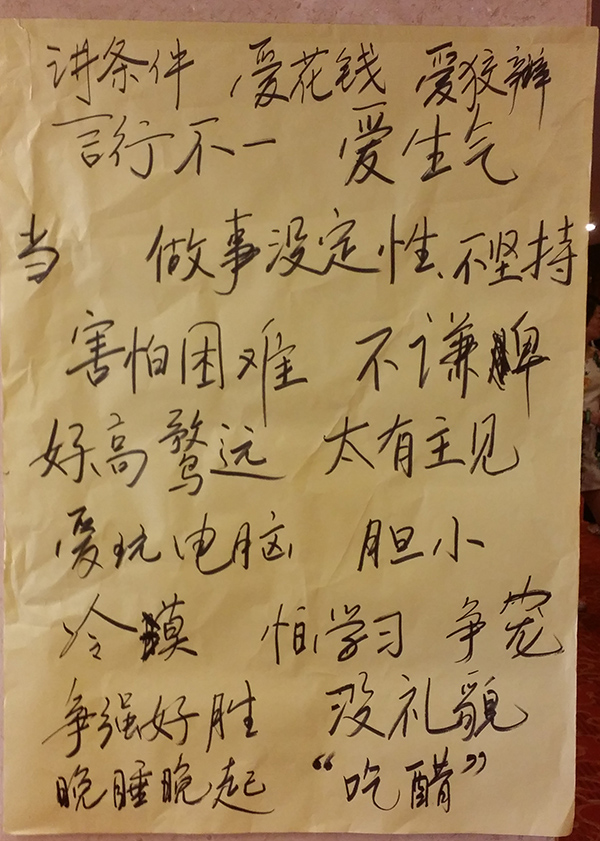 讲条件 爱花钱 爱狡辩
言行不一 爱生气
当 做事没定性、不坚持
害怕困难 不谦卑
好高骛远 太有主见
爱玩电脑 胆小
冷漠 怕学习 争宠
争强好胜 没礼貌
晚睡晚起 “吃醋”